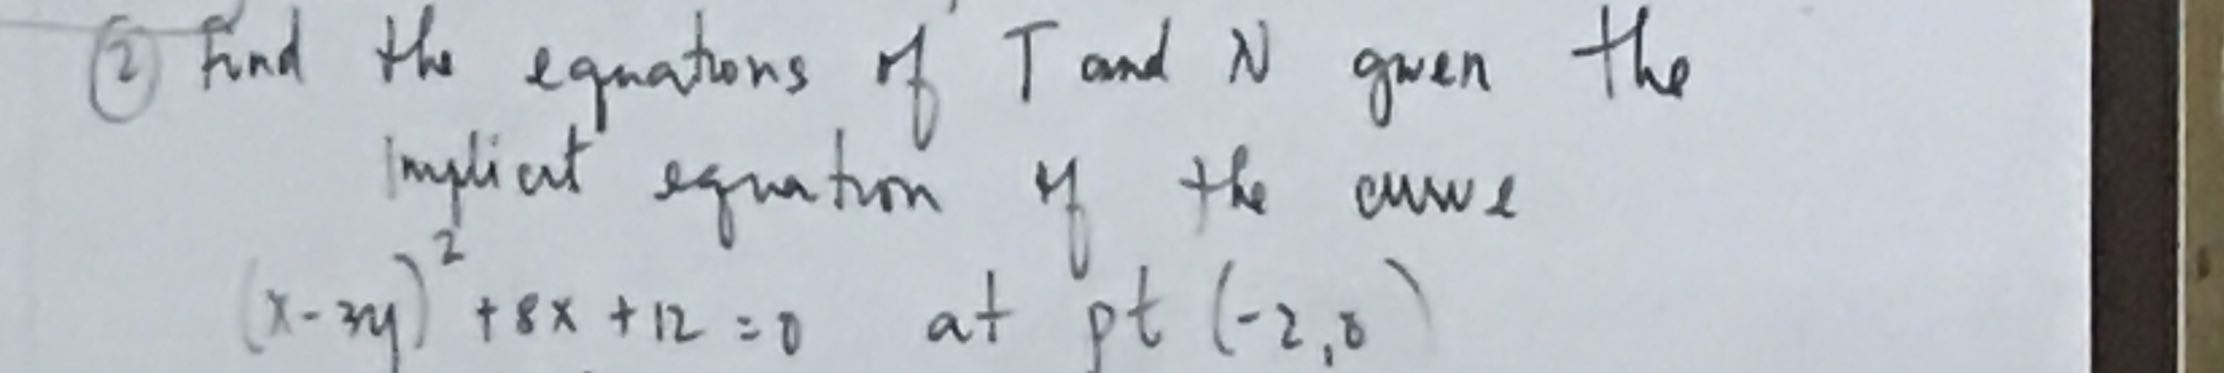 ② Find the equations of T and N given the
implicit equation of the curve
(x-3y)² + 8x + 12 = 0 at pt (-2,0)